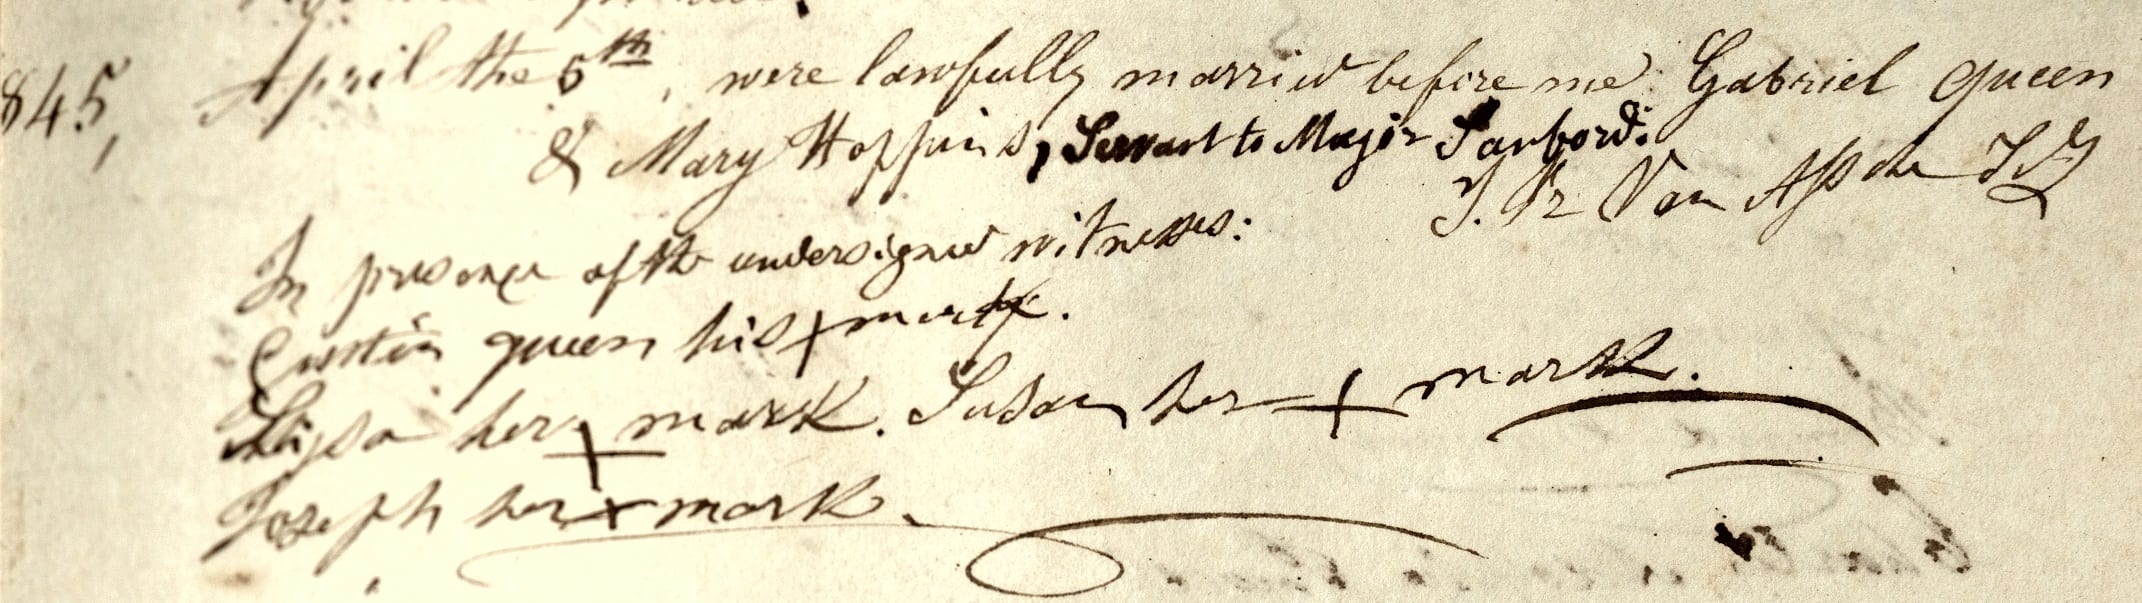 845, April the 5th, were lawfully married before me Gabriel queen
& Mary Hoppins, Servant to Major Sanford.
J. Bz Van Assche S.J
In presence of the undersigned witnesses:
queen his + mark.
her + mark. Susan her + mark.
Joseph her + mark.